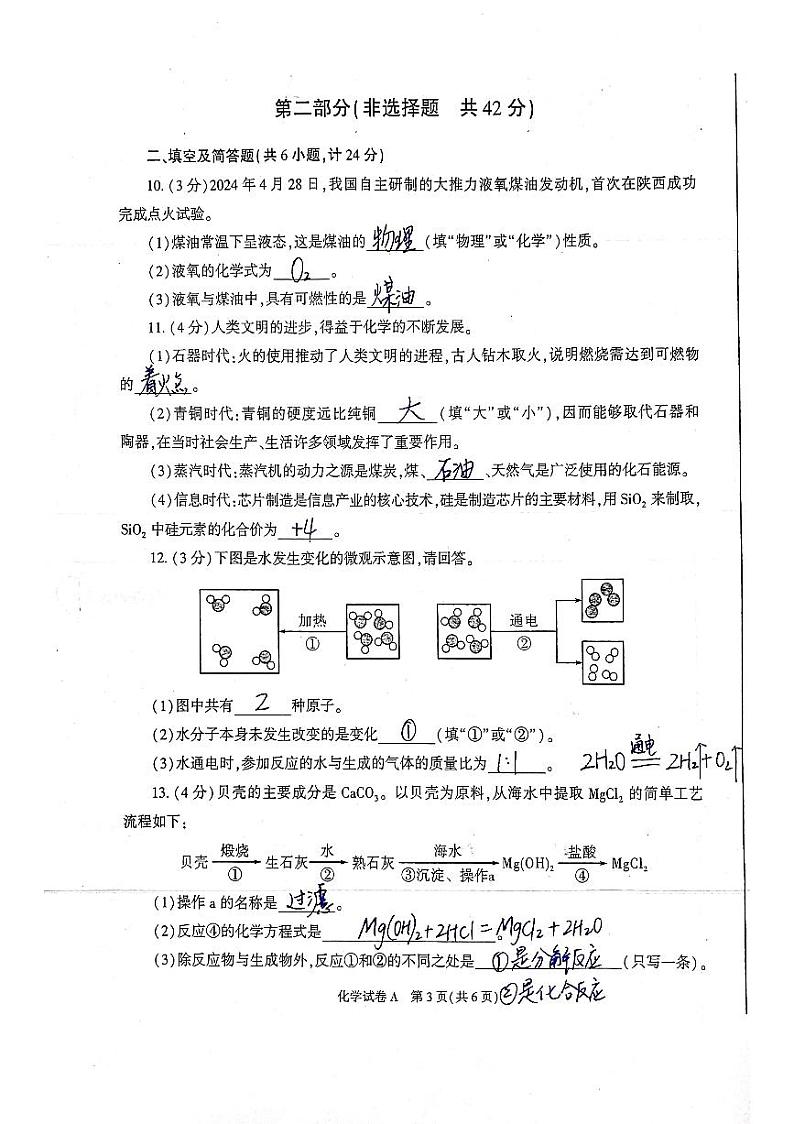 第二部分(非选择题 共42分)
二、填空及简答题(共6小题,计24分)
10.(3分)2024年4月28日,我国自主研制的大推力液氧煤油发动机,首次在陕西成功
完成点火试验。
(1)煤油常温下呈液态,这是煤油的 物理 (填“物理”或“化学”)性质。
(2)液氧的化学式为 O₂ 。
(3)液氧与煤油中,具有可燃性的是 煤油 。
11.(4分)人类文明的进步,得益于化学的不断发展。
(1)石器时代:火的使用推动了人类文明的进程,古人钻木取火,说明燃烧需达到可燃物
的 着火点 。
(2)青铜时代:青铜的硬度远比纯铜 大 (填“大”或“小”),因而能够取代石器和
陶器,在当时社会生产、生活许多领域发挥了重要作用。
(3)蒸汽时代:蒸汽机的动力之源是煤炭,煤、 石油 、天然气是广泛使用的化石能源。
(4)信息时代:芯片制造是信息产业的核心技术,硅是制造芯片的主要材料,用SiO₂来制取,
SiO₂中硅元素的化合价为 +4 。
12.(3分)下图是水发生变化的微观示意图,请回答。
加热 ① 通电 ②
(1)图中共有 2 种原子。
(2)水分子本身未发生改变的是变化 ① (填“①”或“②”)。
(3)水通电时,参加反应的水与生成的气体的质量比为 1:1 。 2H₂O 通电 == 2H₂↑+O₂↑
13.(4分)贝壳的主要成分是CaCO₃。以贝壳为原料,从海水中提取MgCl₂的简单工艺
流程如下:
贝壳 煅烧 ① 生石灰 水 ② 熟石灰 海水 ③沉淀、操作a Mg(OH)₂ 盐酸 ④ MgCl₂
(1)操作a的名称是 过滤 。
(2)反应④的化学方程式是 Mg(OH)₂+2HCl=MgCl₂+2H₂O 。
(3)除反应物与生成物外,反应①和②的不同之处是 ①是分解反应 (只写一条)。
化学试卷A 第3页(共6页) ②是化合反应